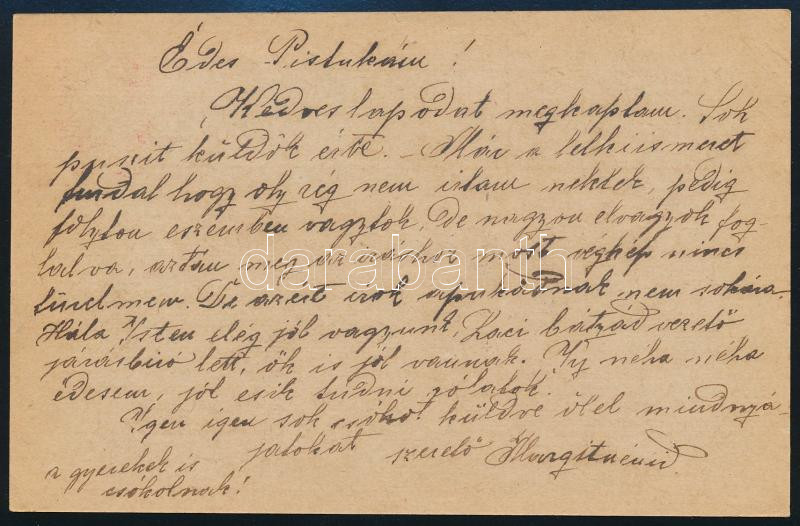 Édes Pistukám!
Kedves lapodat megkaptam. Sok
puszit küldök érte. – Már a lelkiismeret
furdal hogy oly rég nem irtam nektek, pedig
folyton eszemben vagytok. De nagyon elvagyok fog-
lalva, aztán meg az iráshoz most végkép nincs
türelmem. De azért irok apukádnak nem sokára.
Hála Isten elég jól vagyunk, Laci bátyád vezető
járásbiró lett, ők is jól vannak. Irj néha néha
édesem, jól esik tudni rólatok.
Igen igen sok csókot küldve ölel mindnyá-
jatokat szerető Margitnénid.
a gyerekek is
csókolnak!
darabanth